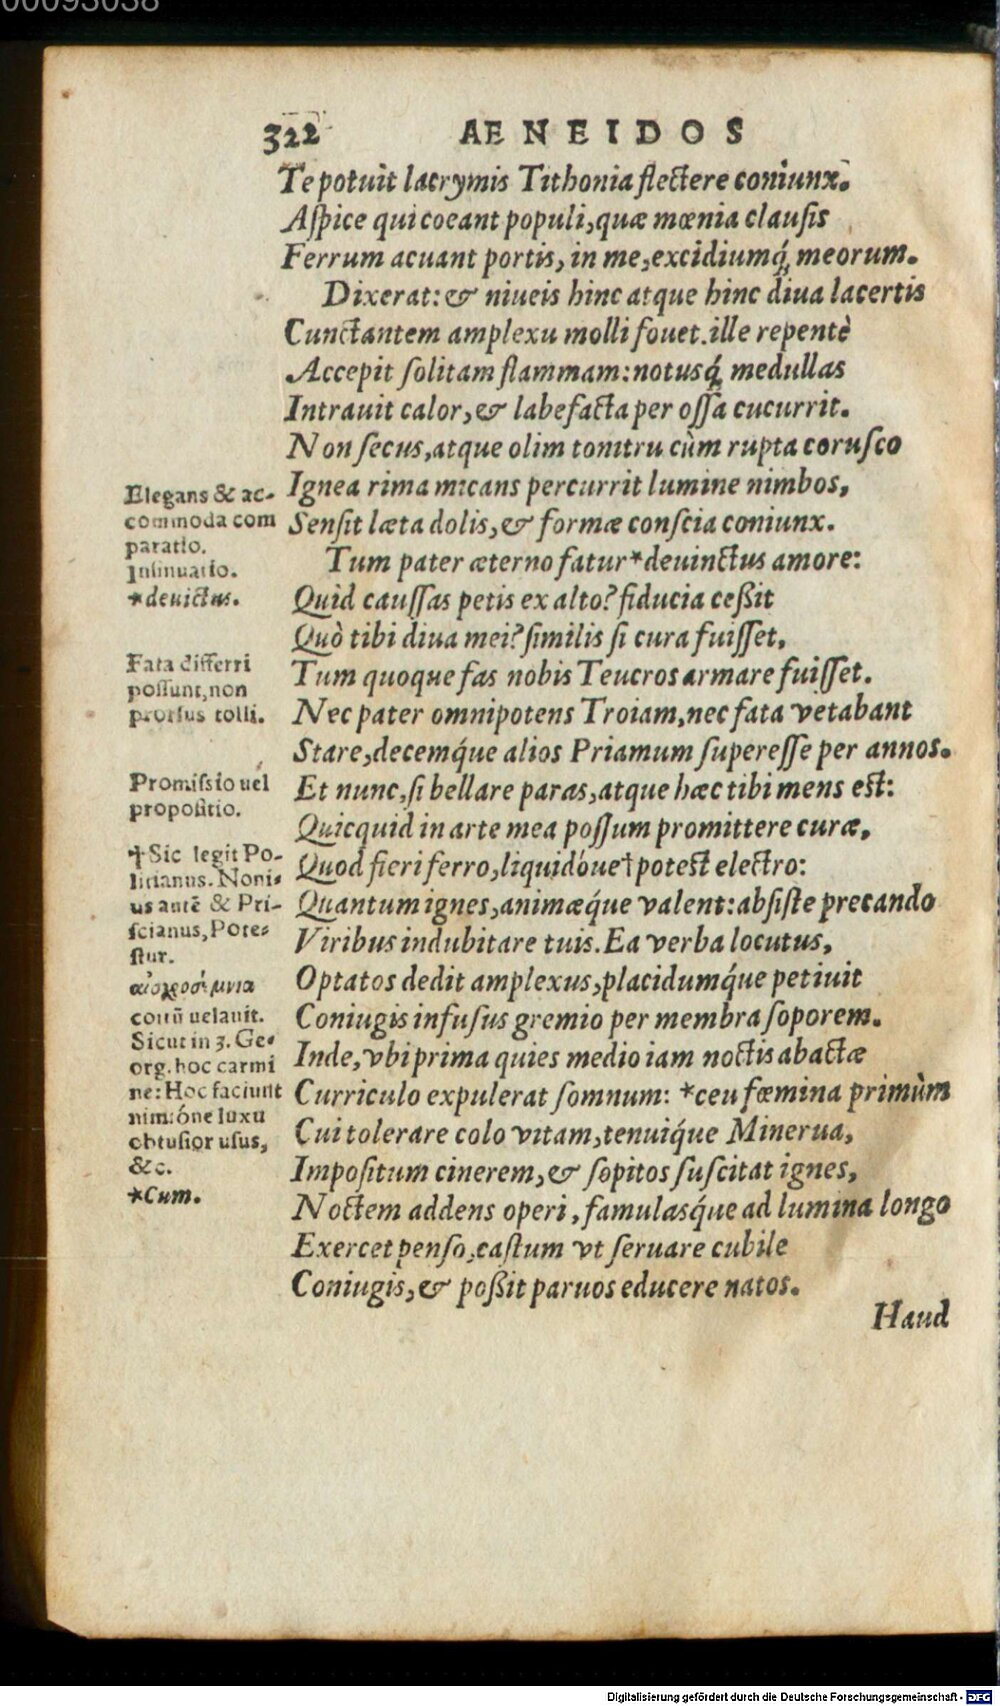 00093038
322 AENEIDOS
Te potuit lacrymis Tithonia flectere coniunx.
Aſpice qui coeant populi, quæ mœnia clauſis
Ferrum acuant portis, in me, excidiumq́ meorum.
Dixerat: & niueis hinc atque hinc diua lacertis
Cunctantem amplexu molli fouet. ille repentè
Accepit ſolitam flammam: notusq́ medullas
Intrauit calor, & labefacta per oſſa cucurrit.
Non ſecus, atque olim tonitru cùm rupta coruſco
Ignea rima micans percurrit lumine nimbos,
Senſit læta dolis, & formæ conſcia coniunx.
Tum pater æterno fatur *deuinctus amore:
Quid cauſſas petis ex alto? fiducia ceßit
Quò tibi diua mei? ſimilis ſi cura fuiſſet,
Tum quoque fas nobis Teucros armare fuiſſet.
Nec pater omnipotens Troiam, nec fata vetabant
Stare, decemq́ue alios Priamum ſupereſſe per annos.
Et nunc, ſi bellare paras, atque hæc tibi mens eſt:
Quicquid in arte mea poſſum promittere curæ,
Quod fieri ferro, liquidóue †poteſt electro:
Quantum ignes, animæq́ue valent: abſiſte precando
Viribus indubitare tuis. Ea verba locutus,
Optatos dedit amplexus, placidumq́ue petiuit
Coniugis infuſus gremio per membra ſoporem.
Inde, vbi prima quies medio iam noctis abactæ
Curriculo expulerat ſomnum: *ceu fœmina primùm
Cui tolerare colo vitam, tenuiq́ue Minerua,
Impoſitum cinerem, & ſopitos ſuſcitat ignes,
Noctem addens operi, famulasq́ue ad lumina longo
Exercet penſo, caſtum vt ſeruare cubile
Coniugis, & poßit paruos educere natos.
Haud
Elegans & ac-
commoda com
paratio.
Inſinuatio.
*deuictus.
Fata differri
poſſunt, non
prorſus tolli.
Promiſsio uel
propoſitio.
†Sic legit Po-
litianus. Noni-
us autē & Pri-
ſcianus, Pote-
ſtur.
coitū uelauit.
Sicut in 3. Ge-
org. hoc carmi
ne: Hoc faciunt
nimióne luxu
obtuſior uſus,
&c.
*Cum.
Digitalisierung gefördert durch die Deutsche Forschungsgemeinschaft - DFG